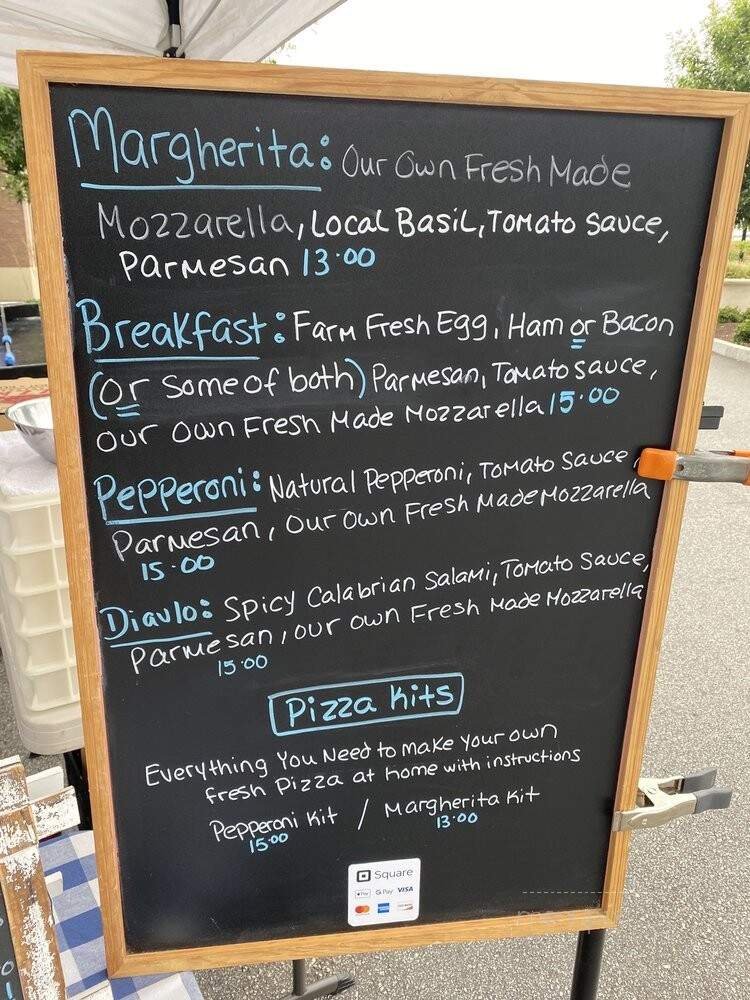 Margherita: Our Own Fresh Made
Mozzarella, Local Basil, Tomato Sauce,
Parmesan 13.00
Breakfast: Farm Fresh Egg, Ham or Bacon
(or some of both) Parmesan, Tomato sauce,
our own Fresh Made Mozzarella 15.00
Pepperoni: Natural Pepperoni, Tomato Sauce
Parmesan, Our Own Fresh Made Mozzarella
15.00
Diavlo: Spicy Calabrian Salami, Tomato Sauce,
Parmesan, our own Fresh Made Mozzarella
15.00
Pizza Kits
Everything You Need to make your own
fresh Pizza at home with instructions
Pepperoni Kit / Margherita Kit
15.00 13.00
Square
Pay G Pay VISA